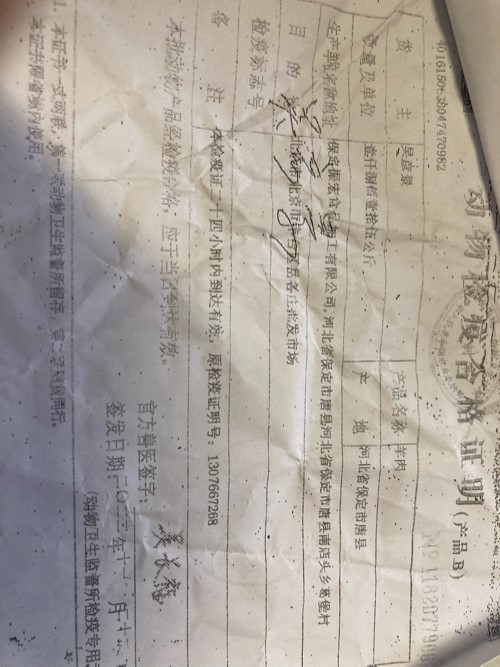 动物检疫合格证明(产品B)
4016150636047470982
货 主
产品名称 羊肉
数量及单位 壹仟捌佰壹拾伍公斤
产 地 河北省保定市唐县
生产单位名称地址 保定振宏食品加工有限公司,河北省保定市唐县河北省保定市唐县南店头乡葛堡村
目 的 地 北京市北京市丰台区岳各庄批发市场
检疫标志号
备 注 体检疫证二十四小时内到达有效,原检疫证明号:1307667268
本批动物产品经检疫合格,应于当日到达有效。
官方兽医签字:
签发日期:二〇二三年十二月十
(动物卫生监督所检疫专用
1. 本证书一式两联,第一联动物卫生监督所留存,第二联随货同行。
2. 本证书限省境内使用。